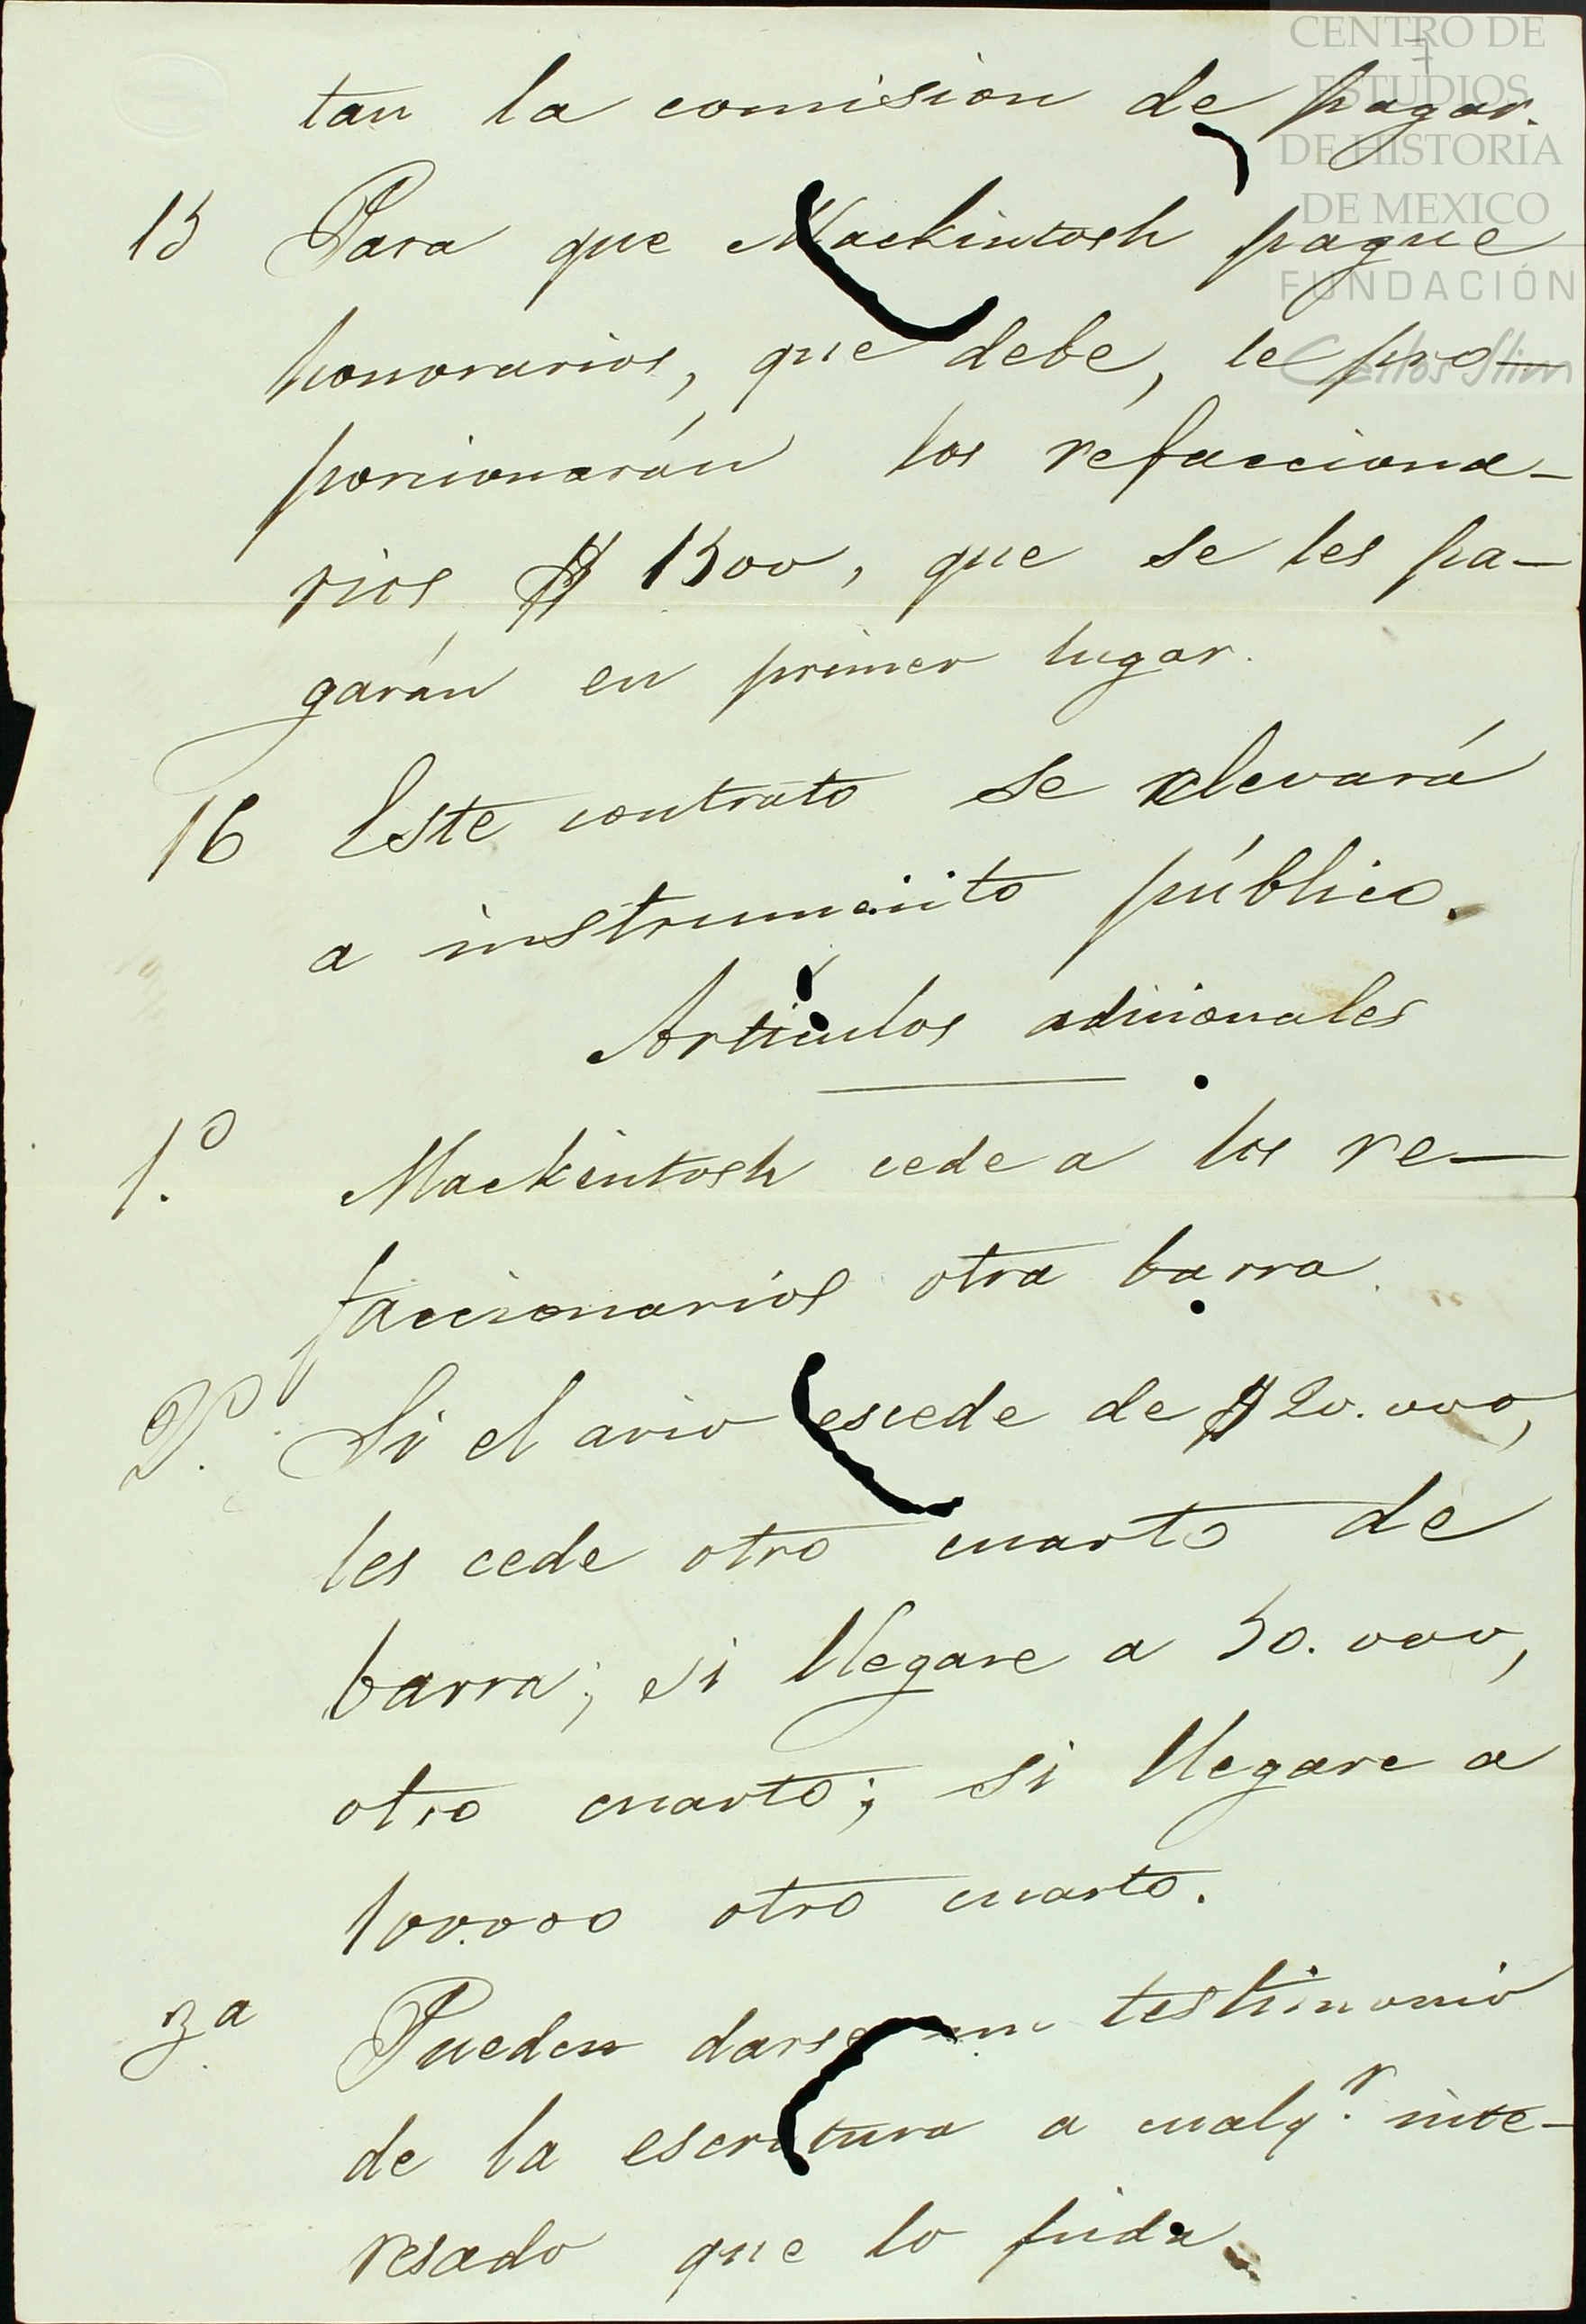 CENTRO DE
ESTUDIOS
DE HISTORIA
DE MEXICO
FUNDACIÓN
Carlos Slim
7
tan la comision de pagar.
15 Para que Mackintosh pague
honorarios, que debe, le pro-
porcionarán los refacciona-
rios $ 1500, que se les pa-
garán en primer lugar.
16 Este contrato se elevará
a instrumento público.
Artículos adicionales
1.º Mackintosh cede a los re-
faccionarios otra barra.
2.º Si el avio escede de $ 20.000,
les cede otro cuarto de
barra; si llegare a 50.000,
otro cuarto; si llegare a
100.000 otro cuarto.
3.a Pueden darse un testimonio
de la escritura a cualq.r inte-
resado que lo pida.